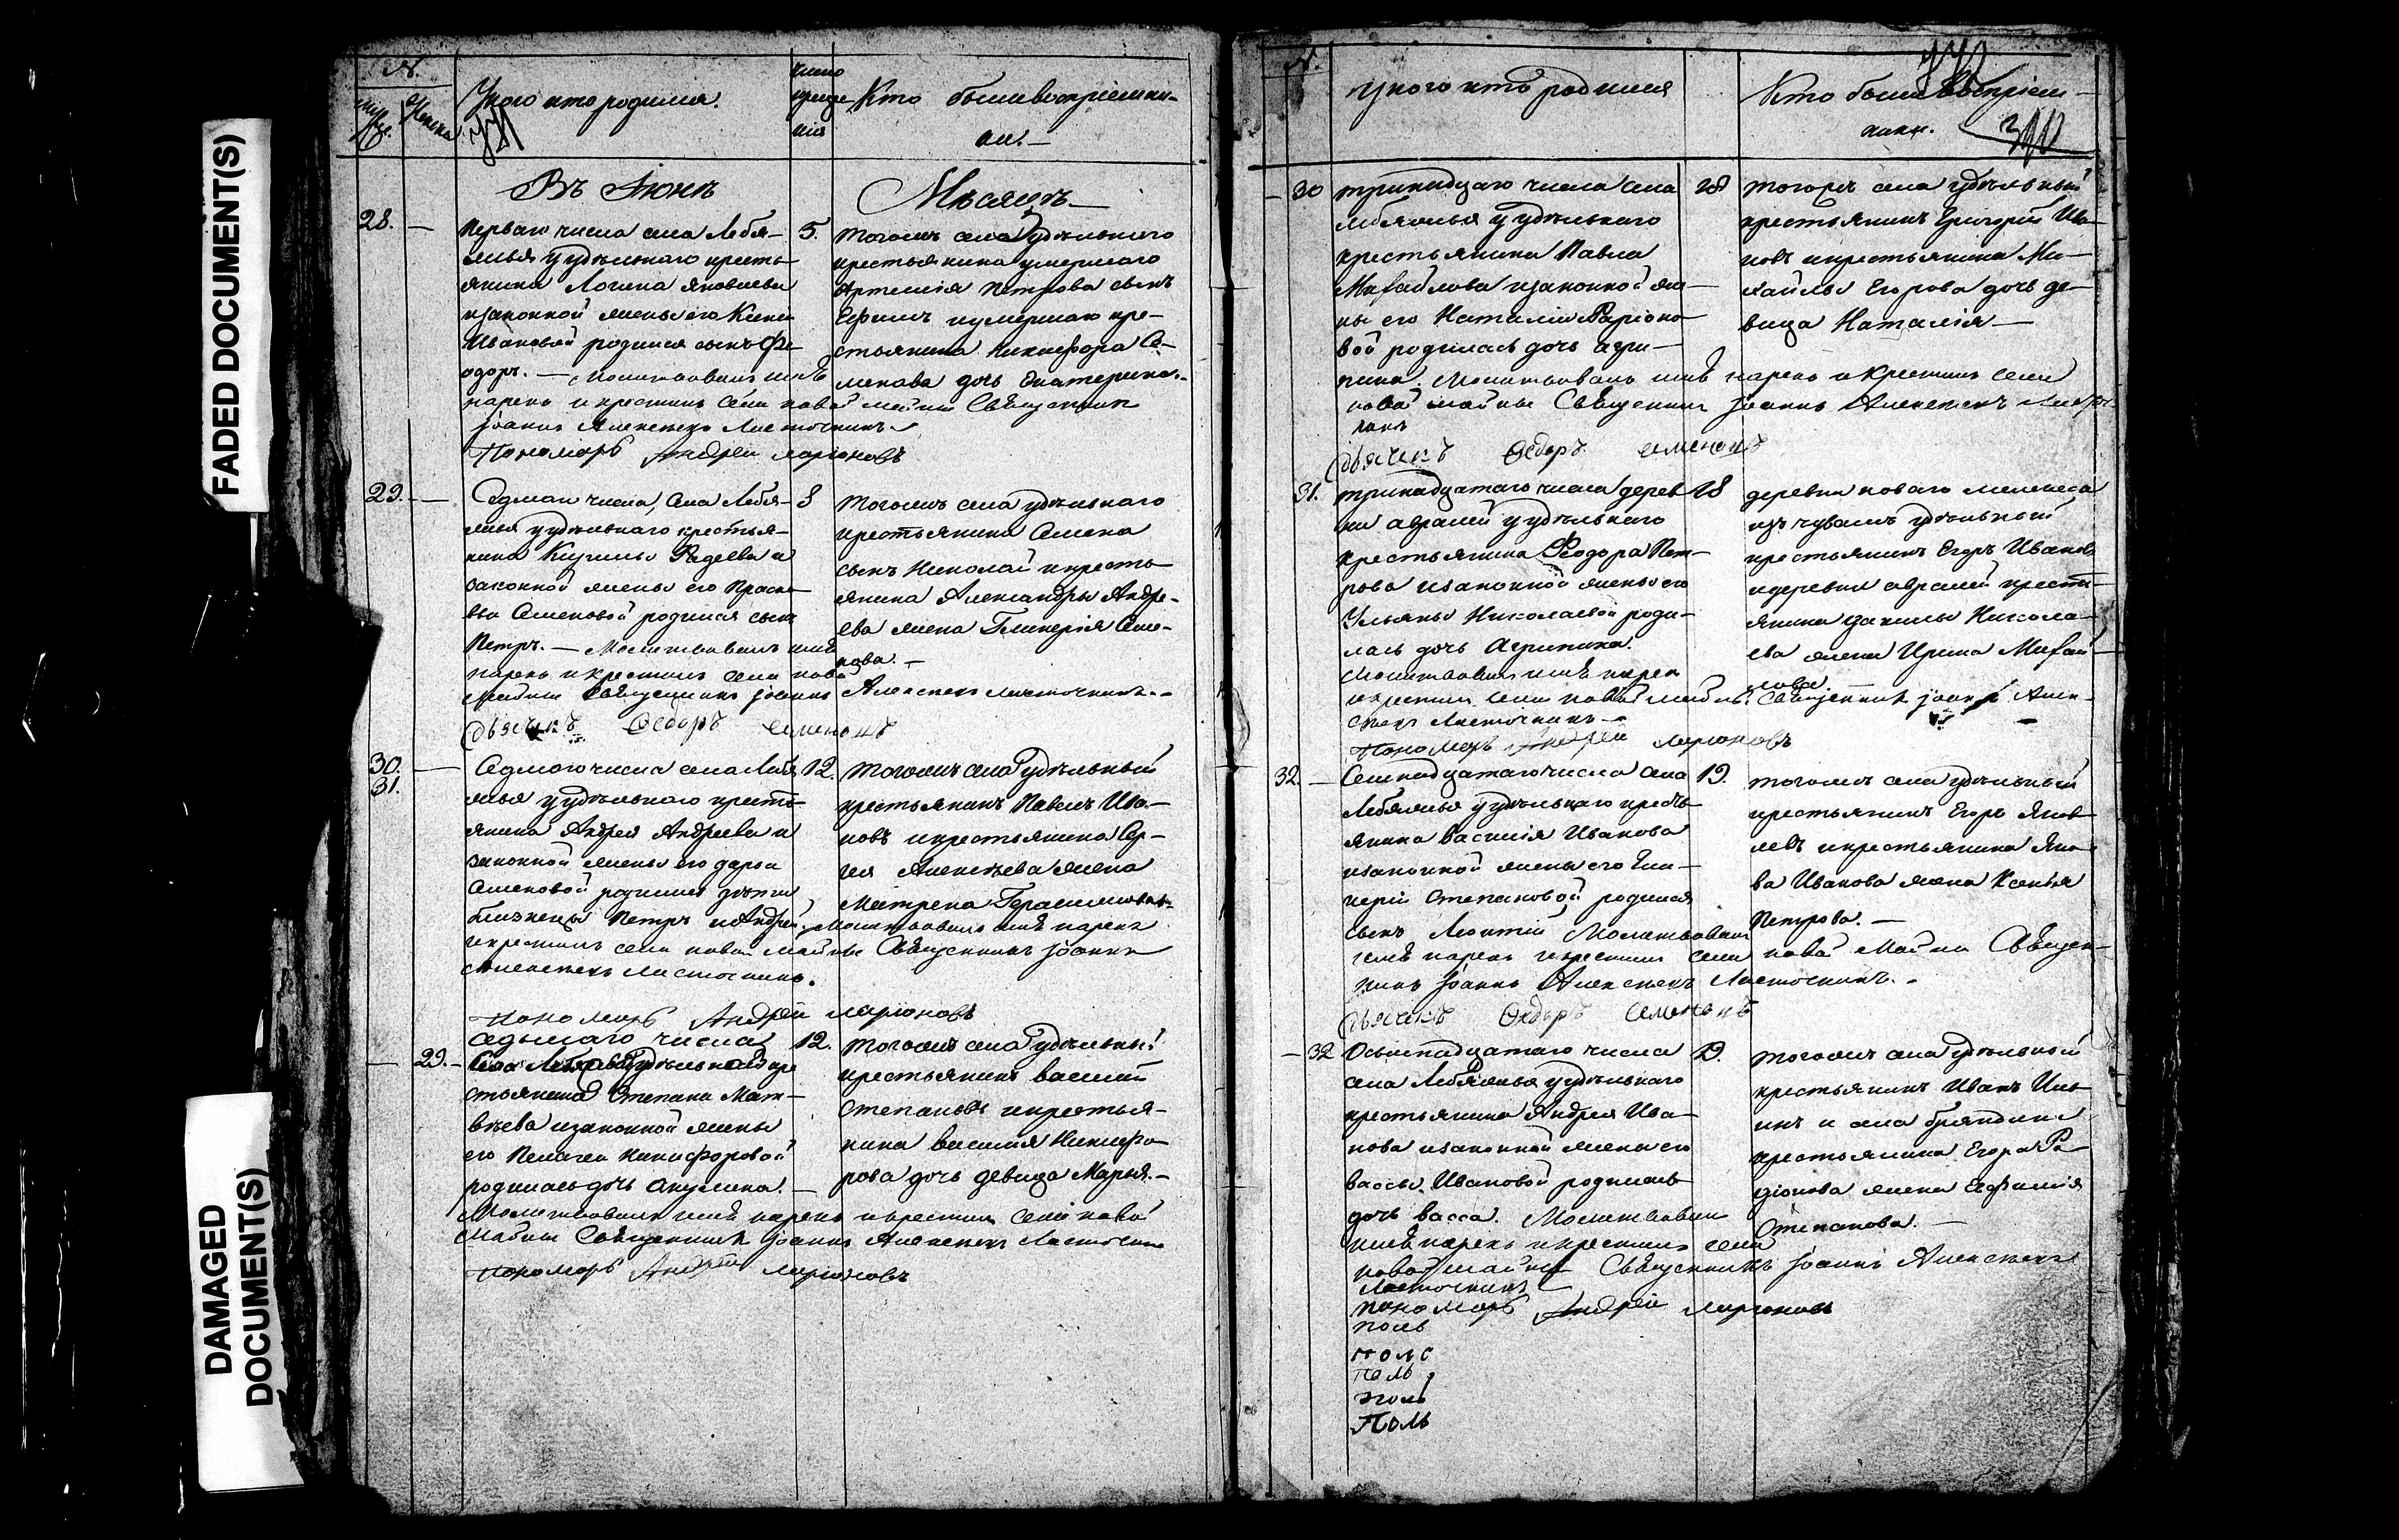 FADED DOCUMENT(S)
DAMAGED
DOCUMENT(S)
№.
У кого кто родился.
число
креще
нія
Кто были воспріемни-
ки.—
Въ Іюнѣ Мѣсяцѣ
28. —
Перваго числа села Лебя-
жья у удѣльнаго кресть
янина Логина Яковлева
и законной жены его
Ивановой родился сынъ Фе
одоръ. — Молитвовалъ имя
нарекъ и крестилъ села новой майны Священникъ
Іоаннъ Алексѣевъ Ласточкинъ
Пономарь Андрей Ларіоновъ
5.
Тогожъ села удѣльнаго
крестьянина умершаго
Артемія Петрова сынъ
Ефимъ и умершаго кре-
стьянина Никифора Се-
менова дочь Екатерина.
29. —
Седмаго числа, села Лебя-
жья у удѣльнаго крестья-
нина Кирилы Фадеева и
законной жены его Праско
вьи Семеновой родился сынъ
Петръ. — Молитвовалъ имя
нарекъ и крестилъ села новой
Майны Священникъ Іоаннъ Алексѣевъ Ласточкинъ.
Дьячекъ Ѳедоръ Семеновъ
8
Тогожъ села удѣльнаго
крестьянина Семена
сынъ Николай и кресть
янина Александры Андре-
ева жена Гликерія Семе-
нова. —
30. —
31.
Седмаго числа села Лебя
жья у удѣльнаго кресть
янина Андрея Андреева и
законной жены его Дарьи
Семеновой родились дѣти
близнецы Петръ и Андрей. Молитвовалъ имя нарекъ
и крестилъ села новой Майны Священникъ Іоаннъ
Алексѣевъ Ласточкинъ.
Пономарь Андрей Ларіоновъ
12.
Тогожъ села удѣльный
крестьянинъ Павелъ Ива-
новъ и крестьянина Сер-
гея Алексѣева жена
Матрена Герасимова.
— 29. —
Седьмаго числа
Села Лебяжья у удѣльнаго кре
стьянина Степана Мат-
вѣева и законной жены
его Пелагеи Никифоровой
родилась дочь Акулина. —
Молитвовалъ имя нарекъ и крестилъ села новой
Майны Священникъ Іоаннъ Алексѣевъ Ласточкинъ
Пономарь Андрей Ларіоновъ
12.
Тогожъ села удѣльный
крестьянинъ Василій
Степановъ и крестья-
нина Василья Никифо-
рова дочь девица Марья. —
№.
У кого кто родился
Кто были воспріем-
ники.
— 30
Тринадцаго числа села
Лебяжья у удѣльнаго
крестьянина Павла
Михайлова и законной же-
ны его Наталіи Ларіоно-
вой родилась дочь Агри-
пина. Молитвовалъ имя нарекъ и крестилъ села
новой Майны Священникъ Іоаннъ Алексѣевъ Ласточ
кинъ
Дьячекъ Ѳедоръ Семеновъ
18
Тогожъ села удѣльный
крестьянинъ Григорій Ива-
новъ и крестьянина Ми-
хайлы Егорова дочь де-
вица Наталія —
31.
Тринадцатаго числа дерев
ни Авралей у удѣльнаго
крестьянина Ѳеодора Пет-
рова и законной жены его
Ульяны Николаевой роди-
лась дочь Агрипина.
Молитвовалъ имя нарекъ
и крестилъ села новой Майны Священникъ Іоаннъ Алек-
сѣевъ Ласточкинъ —
Пономарь Андрей Ларіоновъ
18
деревни новаго Мелекеса
изъ чувашъ удѣльный
крестьянинъ Егоръ Ивановъ
и деревни Авралей кресть-
янина Данилы Никола-
ева жена Ирина Михай-
лова
32. —
Семнадцатаго числа села
Лебяжья у удѣльнаго кресть
янина Василія Иванова
и законной жены его Гли-
керіи Степановой родился
сынъ Леонтій Молитвовалъ
имя нарекъ и крестилъ села новой Майны Священ-
никъ Іоаннъ Алексѣевъ Ласточкинъ. —
Дьячекъ Ѳедоръ Семеновъ
19.
Тогожъ села удѣльный
крестьянинъ Егоръ Яков
левъ и крестьянина Яко-
ва Иванова жена Ксенья
Петрова. —
— 32
Осьмнадцатаго числа
села Лебяжья у удѣльнаго
крестьянина Андрея Ива-
нова и законной жены его
Вассы Ивановой родилась
дочь Васса. Молитвовалъ
имя нарекъ и крестилъ села
новой Майны Священникъ Іоаннъ Алексѣевъ
Ласточкинъ
Пономарь Андрей Ларіоновъ
поль
поль
поль
поль
Поль
19.
Тогожъ села удѣльной
крестьянинъ Иванъ Иль
инъ и села Бряндина
крестьянина Егора Ра-
діонова жена Евфимія
Степанова. —